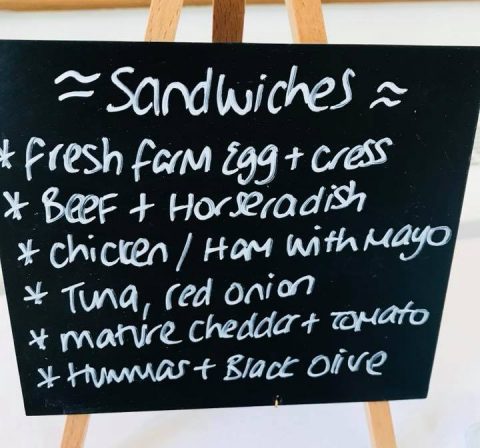 ≈ Sandwiches ≈
* Fresh farm Egg + cress
* BEEF + Horseradish
* chicken / Ham with Mayo
* Tuna, red onion
* mature cheddar + tomato
* Hummas + Black Olive